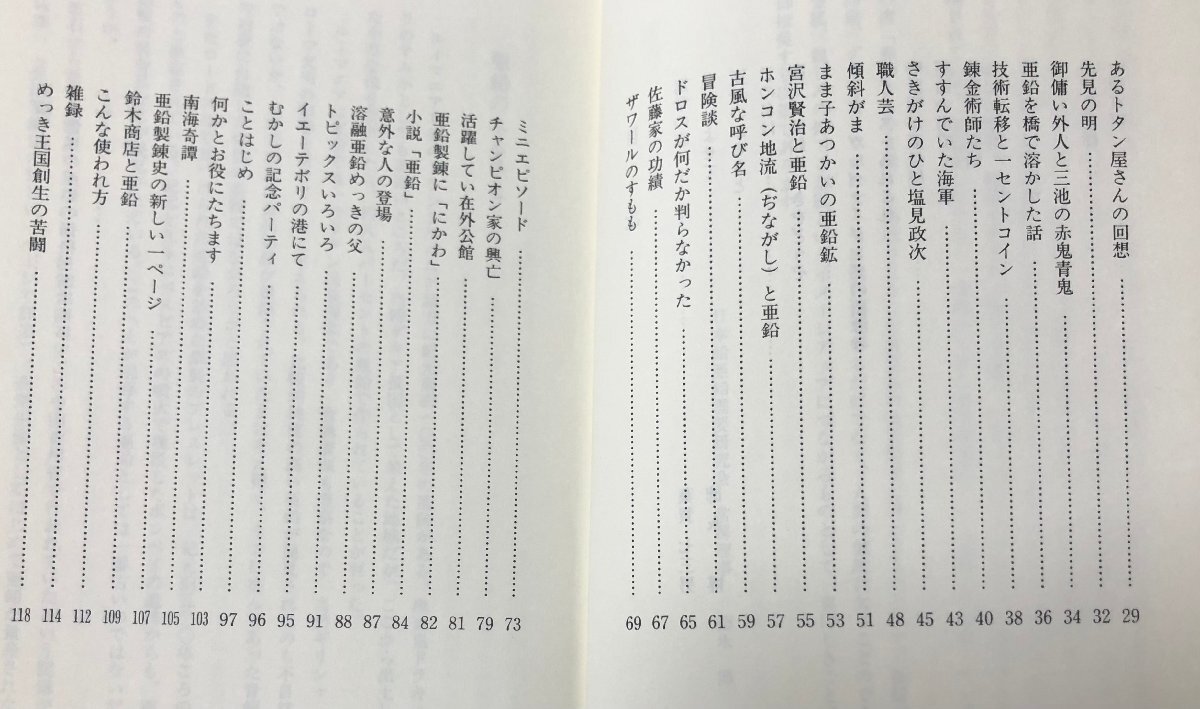 あるトタン屋さんの回想……29
先見の明……32
御傭い外人と三池の赤鬼青鬼……34
亜鉛を橋で溶かした話……36
技術転移と一セントコイン……38
錬金術師たち……40
すすんでいた海軍……43
さきがけのひと塩見政次……45
職人芸……48
傾斜がま……51
まま子あつかいの亜鉛鉱……53
宮沢賢治と亜鉛……55
ホンコン地流（ぢながし）と亜鉛……57
古風な呼び名……59
冒険談……61
ドロスが何だか判らなかった……65
佐藤家の功績……67
ザワールのすもも……69
ミニエピソード……73
チャンピオン家の興亡……79
活躍してい在外公館……81
亜鉛製錬に「にかわ」……82
小説「亜鉛」……84
意外な人の登場……87
溶融亜鉛めっきの父……88
トピックスいろいろ……91
イエーテボリの港にて……95
むかしの記念パーティ……96
ことはじめ……97
何かとお役にたちます……103
南海奇譚……105
亜鉛製錬史の新しい一ページ……107
鈴木商店と亜鉛……109
こんな使われ方……112
雑録……114
めっき王国創生の苦闘……118